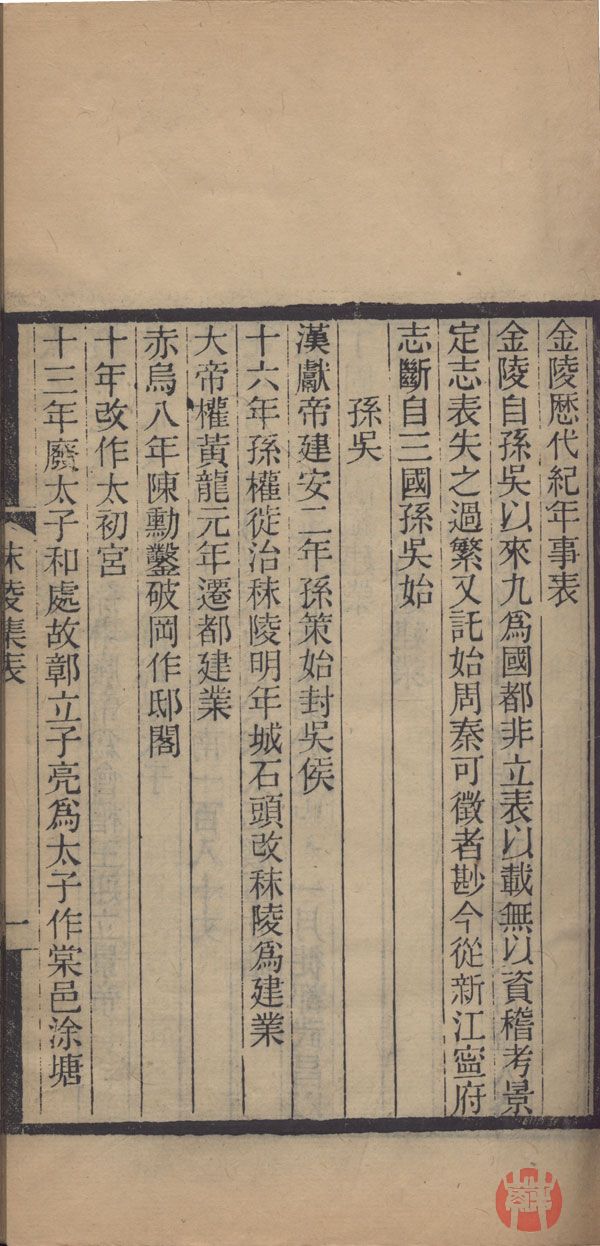 金陵歷代紀年事表
金陵自孫吳以來九爲國都非立表以載無以資稽考景
定志表失之過繁又託始周秦可徵者尠今從新江寧府
志斷自三國孫吳始
孫吳
漢獻帝建安二年孫策始封吳侯
十六年孫權徙治秣陵明年城石頭改秣陵爲建業
大帝權黃龍元年遷都建業
赤烏八年陳勳鑿破岡作邸閣
十年改作太初宮
十三年廢太子和處故鄣立子亮爲太子作棠邑涂塘
秣陵集表
一